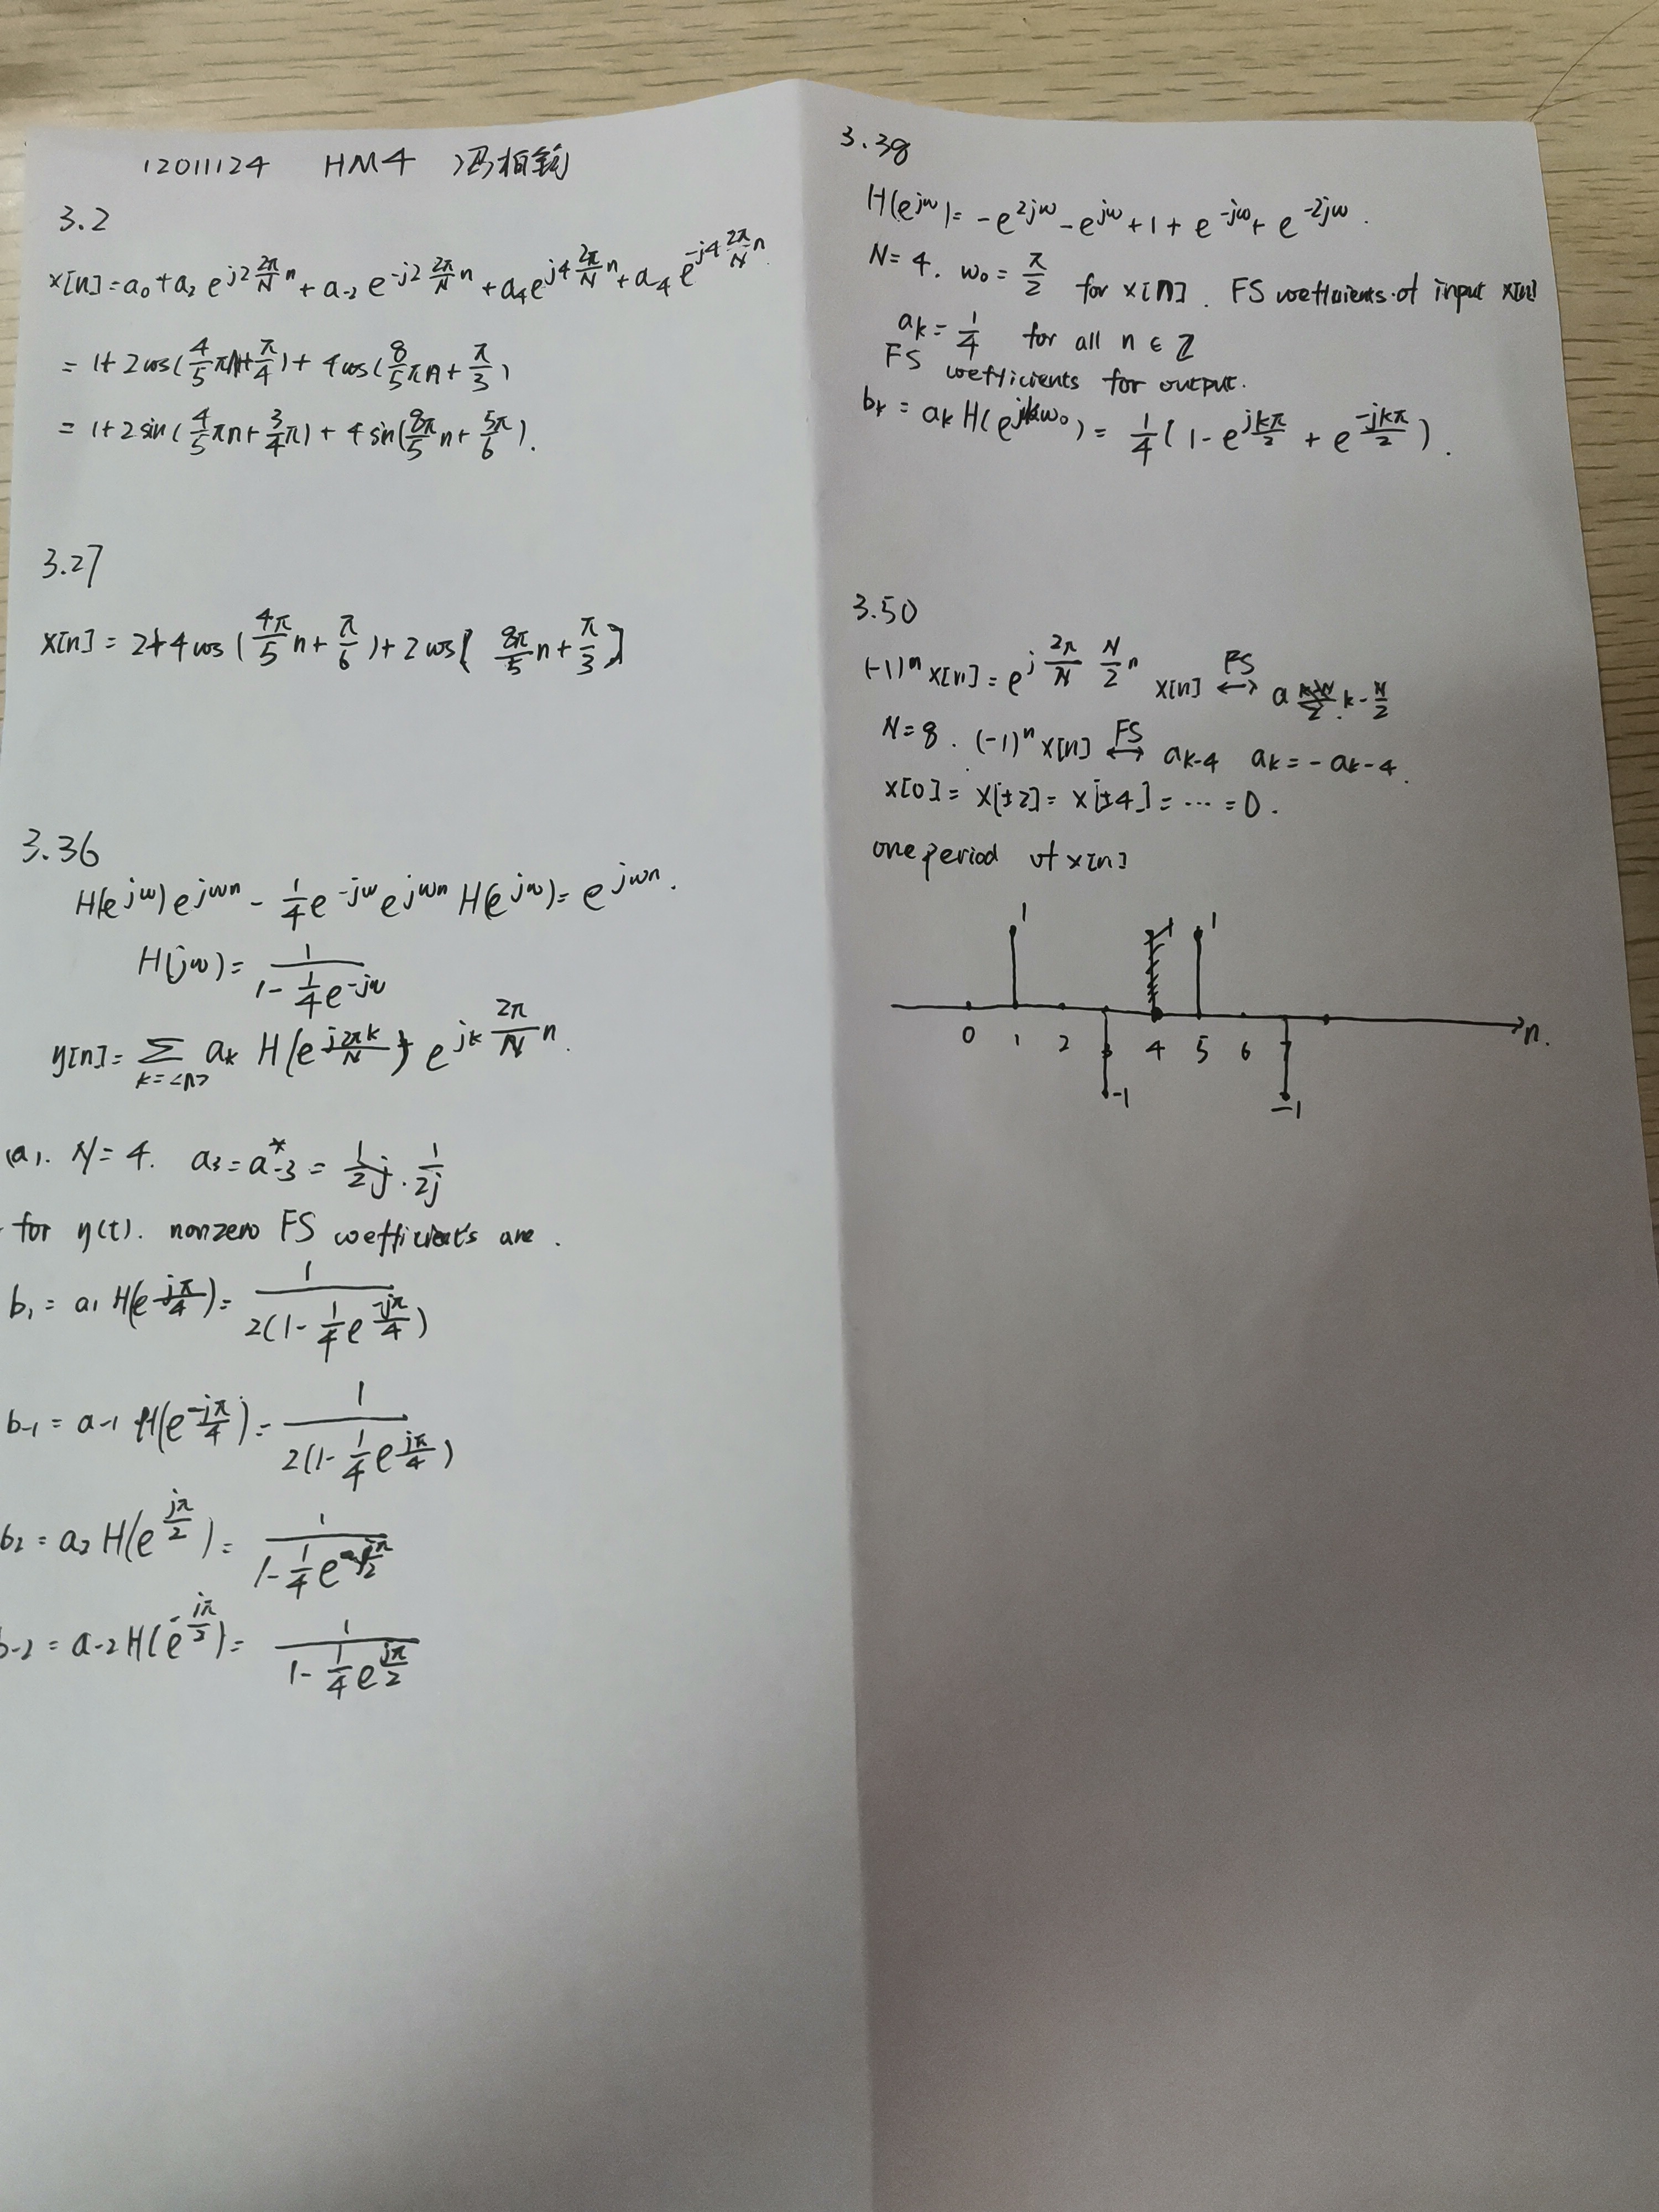 12011124 HM4 冯柏钧
3.2
x[n]=a₀+a₂e^{j2\frac{2π}{N}n}+a₋₂e^{-j2\frac{2π}{N}n}+a₄e^{j4\frac{2π}{N}n}+a₋₄e^{-j4\frac{2π}{N}n}
=1+2cos(\frac{4}{5}πn+\frac{π}{4})+4cos(\frac{8}{5}πn+\frac{π}{3})
=1+2sin(\frac{4}{5}πn+\frac{3}{4}π)+4sin(\frac{8π}{5}n+\frac{5π}{6}).
3.27
x[n]=2+4cos(\frac{4π}{5}n+\frac{π}{6})+2cos[\frac{8π}{5}n+\frac{π}{3}]
3.36
H(e^{jω})e^{jωn}-\frac{1}{4}e^{-jω}e^{jωn}H(e^{jω})=e^{jωn}.
H(jω)=\frac{1}{1-\frac{1}{4}e^{-jω}}
y[n]=\sum_{k=<n>}a_k H(e^{\frac{j2πk}{N}})e^{jk\frac{2π}{N}n}.
(a). N=4. a₃=a₋₃^*=\frac{1}{2}j.\frac{1}{2j}
for y(t). nonzero FS coefficients are.
b₁=a₁H(e^{\frac{jπ}{4}})=\frac{1}{2(1-\frac{1}{4}e^{\frac{-jπ}{4}})}
b₋₁=a₋₁H(e^{\frac{-jπ}{4}})=\frac{1}{2(1-\frac{1}{4}e^{\frac{jπ}{4}})}
b₂=a₂H(e^{\frac{jπ}{2}})=\frac{1}{1-\frac{1}{4}e^{-\frac{jπ}{2}}}
b₋₂=a₋₂H(e^{-\frac{jπ}{2}})=\frac{1}{1-\frac{1}{4}e^{\frac{jπ}{2}}}
3.38
H(e^{jω})=-e^{2jω}-e^{jω}+1+e^{-jω}+e^{-2jω}.
N=4. ω₀=\frac{π}{2} for x[n]. FS coefficients of input x[n]
a_k=\frac{1}{4} for all n∈Z
FS coefficients for output.
b_k=a_kH(e^{jkω₀})=\frac{1}{4}(1-e^{\frac{jkπ}{2}}+e^{\frac{-jkπ}{2}}).
3.50
(-1)ⁿx[n]=e^{j\frac{2π}{N}\frac{N}{2}n}x[n] \overset{FS}{↔} a_{k-\frac{N}{2}}
N=8. (-1)ⁿx[n] \overset{FS}{↔} a_{k-4} a_k=-a_{k-4}.
x[0]=x[±2]=x[±4]=⋯=0.
one period of x[n]
1 1
0 1 2 3 4 5 6 7 n.
-1 -1